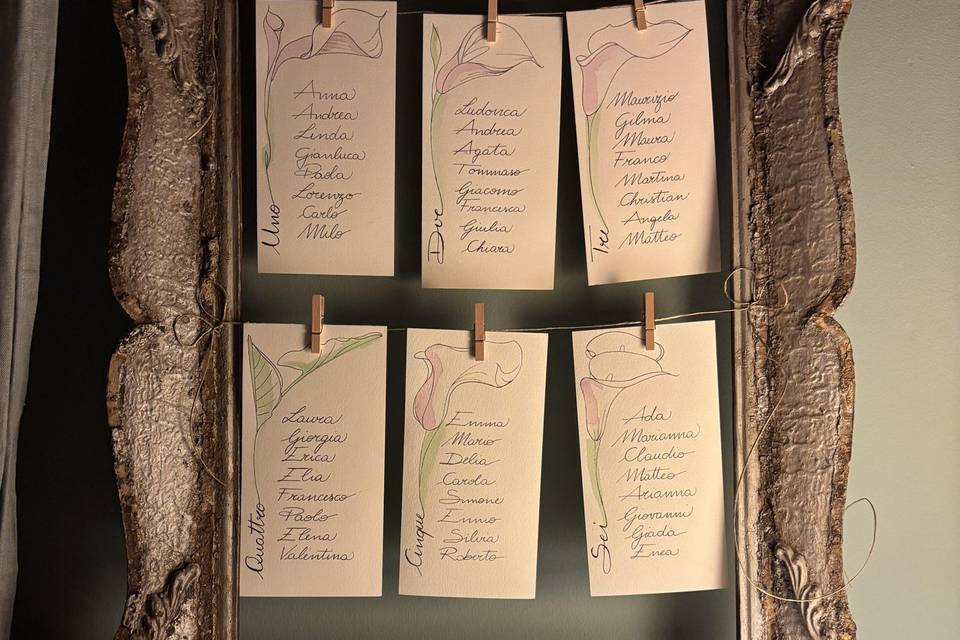 Uno
Anna
Andrea
Linda
Gianluca
Paola
Lorenzo
Carlo
Milo
Due
Ludovica
Andrea
Agata
Tommaso
Giacomo
Francesca
Giulia
Chiara
Tre
Maurizio
Gilma
Maura
Franco
Martina
Christian
Angela
Matteo
Quattro
Laura
Giorgia
Erica
Elia
Francesco
Paolo
Elena
Valentina
Cinque
Emma
Mario
Delia
Carola
Simone
Ennio
Silvia
Roberto
Sei
Ada
Marianna
Claudio
Matteo
Arianna
Giovanni
Giada
Enea